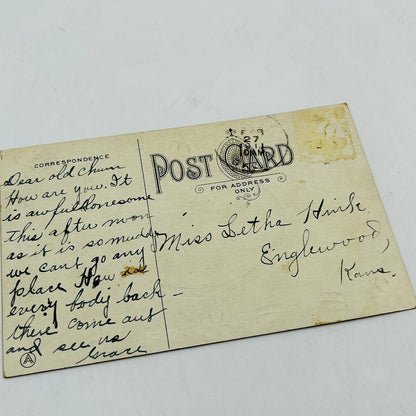 CORRESPONDENCE
Dear old chum
How are you. It
is awful lonesome
this after mon
as it is so muddy
we cant go any
place How is
every body back
there come out
and see us
Grace
A
POST CARD
FOR ADDRESS
ONLY
FEB
27
10 AM
Miss Letha Hink
Englewood,
Kans.